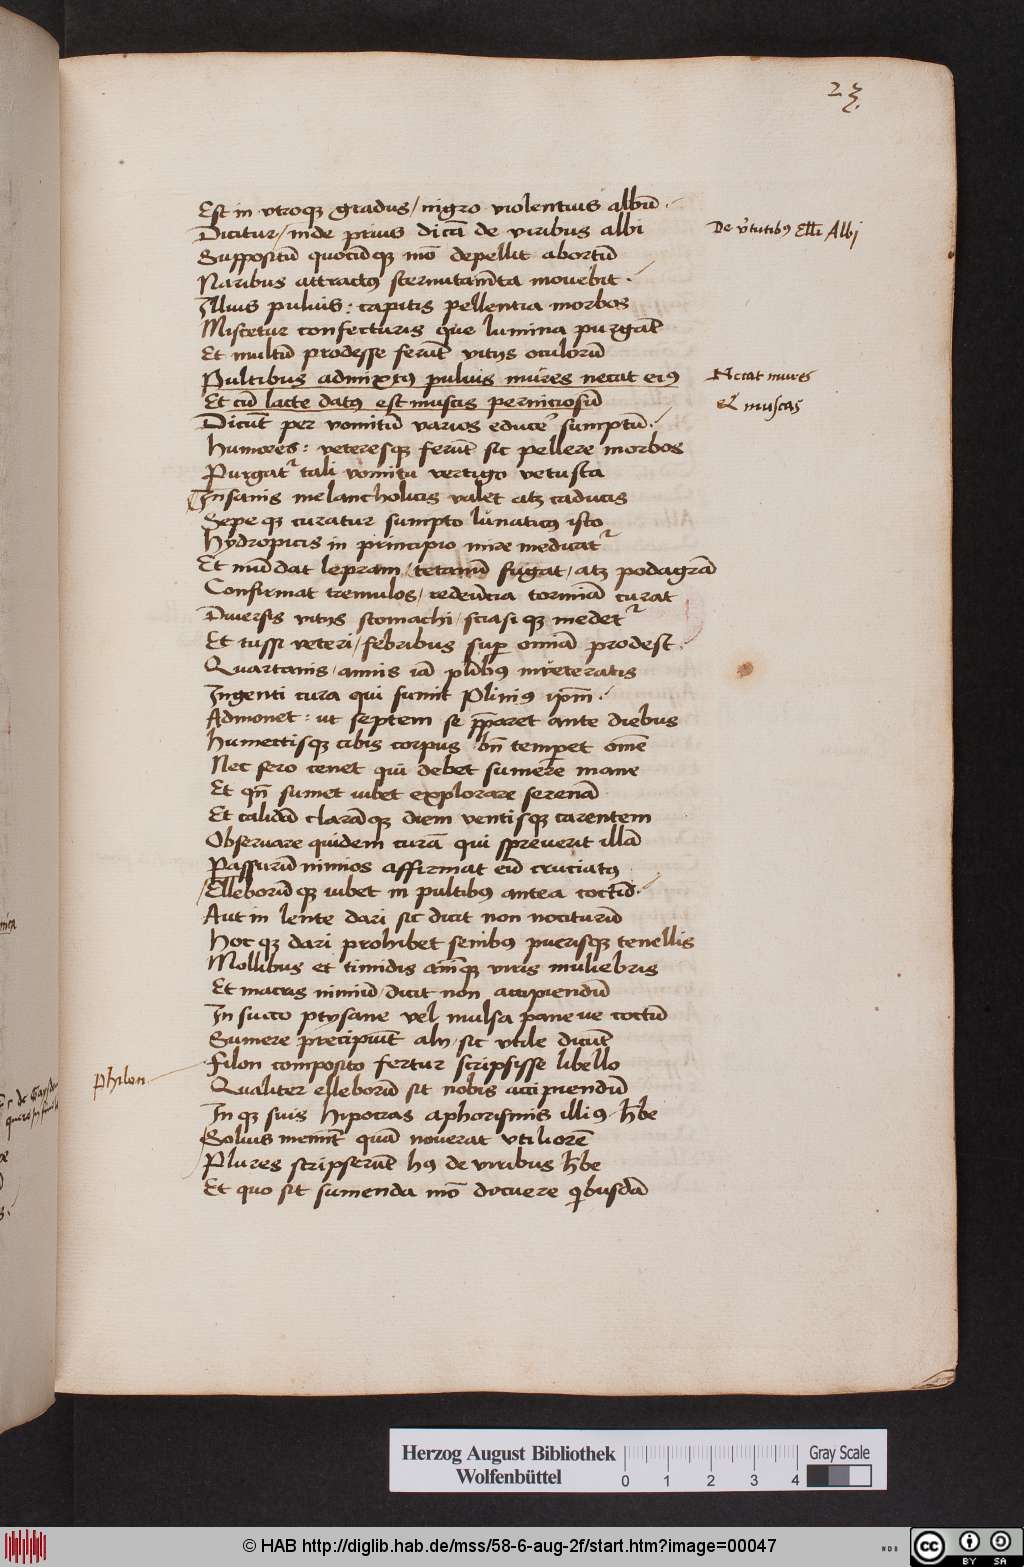 23
Est in vtroqꝫ gradus / nigro violentius albū
Dicitur / inde prius dicā de viribus albi
De v̄tutibꝰ Elli Albi
Suppositū quocūqꝫ mō depellit abortū
Naribus attractus sternutamēta movebit
Illius puluis : capitis pellentia morbos
Miscetur confecturis que lumina purgāt
Et multū prodesse ferūt vitijs oculorū
Pultibus admixtꝰ puluis mures necat eiꝰ
Necat mures
Et cū lacte datꝰ est muscis perniciosū
et muscas
Dicūt per vomitū varios educē sumptū
Humores : veteresqꝫ ferūt sic pellere morbos
Purgatᷣ tali vomitu vertigo vetusta
Insanis melancholicis valet atꝫ caducis
Sepe qꝫ curatur sumpto lunaticꝰ isto
Hydropicis in principio mire medicatᷣ
Et mūdat lepram / tetanū fugat / atꝫ podagrā
Confirmat tremulos / redeūtia torminū curat
Diuersis vitijs stomachi / sciasi qꝫ medetᷣ
Et tussi veteri / febribus suꝑ omīa prodest
Quartanis / annis iā pluribꝰ inveteratis
Ingenti cura qui sumit Pliniꝰ ip̄m
Admonet : ut septem se p̄paret ante diebus
Humectisqꝫ cibis corpus bn̄ temperet om̄e
Nec sero cenet qui debet sumere mane
Et qn̄ sumet iubet explorare serenā
Et calidā clarāqꝫ diem ventisqꝫ carentem
Observare quidem curā qui spreverit illā
Passurū nimios affirmat eū cruciatꝰ
Elleborūqꝫ iubet in pultibꝰ antea coctū
Aut in lente dari sic dicit non nociturū
Hoc qꝫ dari prohibet senibꝰ puerisqꝫ tenellis
Mollibus et timidis aīīqꝫ viris muliebris
Et macris nimiū / dicit non accipiendū
In succo ptysane vel mulsa pane ve coctū
Sumere precipiūt alij / sic vtile dicūt
Philon
Filon composito fertur scripsisse libello
Qualiter elleborū sit nobis accipiendū
In qꝫ suis hipocras aphorismis illiꝰ h̄be
Solius meminit quā noverat vtiliorē
Plures scripserūt hꝰ de viribus h̄be
Et quo sit sumenda mō docuere quibusdā
Herzog August Bibliothek
Wolfenbüttel
0 1 2 3 4
Gray Scale
© HAB http://diglib.hab.de/mss/58-6-aug-2f/start.htm?image=00047
cc BY SA